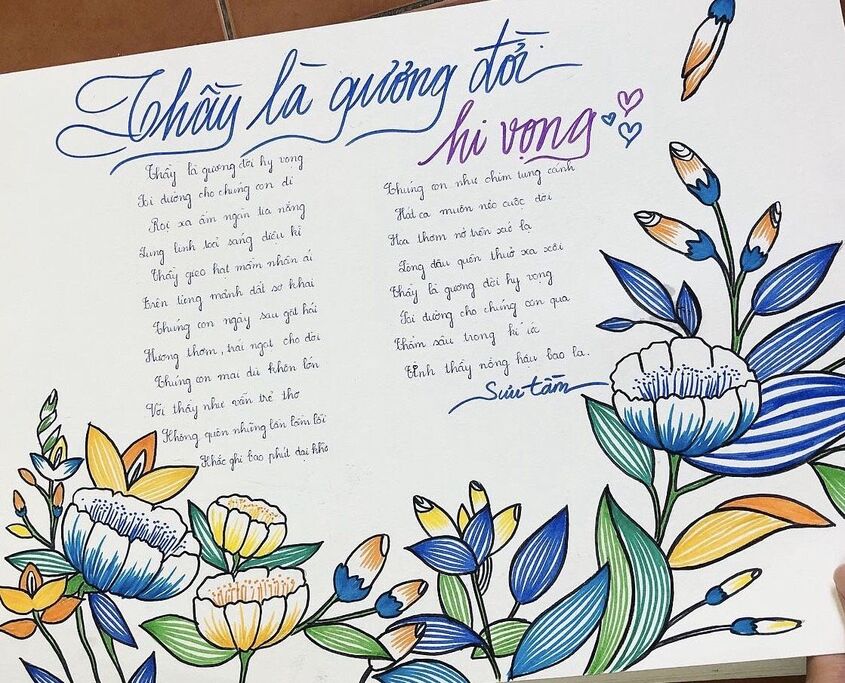 Thầy là gương đời
hi vọng
Thầy là gương đời hy vọng
Tai dương cho chúng con đi
Rọi xa ấm ngàn tia nắng
Lung linh toả sáng diệu kì
Thầy gieo hạt mầm nhân ái
Trên từng mảnh đất sơ khai
Chúng con ngày sau gặt hái
Hương thơm, trái ngọt cho đời
Chúng con mai dù khôn lớn
Với thầy như vẫn trẻ thơ
Không quên những lần lầm lỗi
Khắc ghi bao phút dại khờ
Chúng con như chim tung cánh
Hát ca muôn nẻo cuộc đời
Hoa thơm nở trên xứ lạ
Lòng đâu quên thuở xa xôi
Thầy là gương đời hy vọng
Tai dương cho chúng con qua
Thẳm sâu trong kí ức
Tình thầy nồng hậu bao la.
Sưu tầm